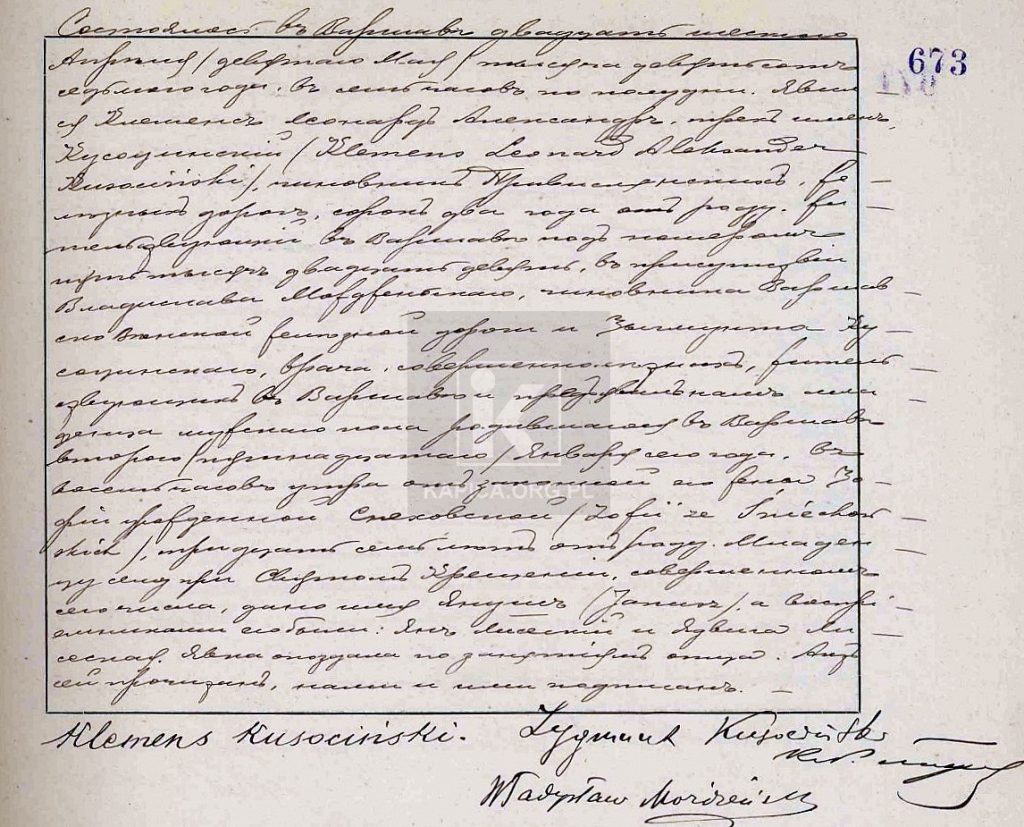 Состоялось въ Варшавѣ двадцать шестого
Апрѣля / девятаго Мая / тысяча девятьсотъ
673
седьмого года, въ семь часовъ по полудни. Явил
ся Клеменсъ Леонардъ Александръ, трехъ именъ,
Кусоцинскій / Klemens Leonard Aleksander
Kusociński /, чиновникъ Привислянскихъ, же
лѣзныхъ дорогъ, сорокъ два года отъ роду, жи
тельствующій въ Варшавѣ подъ номеромъ
тысячъ двадцать девять, въ присутствіи
Владислава чиновника Варшав
ско Вѣнской желѣзной дороги и Зыгмунта Ку
социнскаго, врача, совершеннолѣтнихъ, житель
ствующихъ въ Варшавѣ и предъявилъ намъ мла
денца мужскаго пола родившагося въ Варшавѣ
второго / пятнадцатаго / Января сего года, въ
восемь часовъ утра отъ законной его жены Зо
фіи урожденной Снѣховской / Zofii ze Śniechow
skich /, тридцать семь лѣтъ отъ роду. Младен
цу сему при Святомъ Крещеніи, совершенномъ
сего числа, дано имя Янушъ / Janusz /, а воспрі
емниками его были: Янъ и Ядвига
Явка опоздала по занятіямъ отца. Актъ
сей прочитанъ, нами и ими подписанъ. —
Klemens Kusociński.
Zygmunt Kusociński
Władysław
KAPICA.ORG.PL